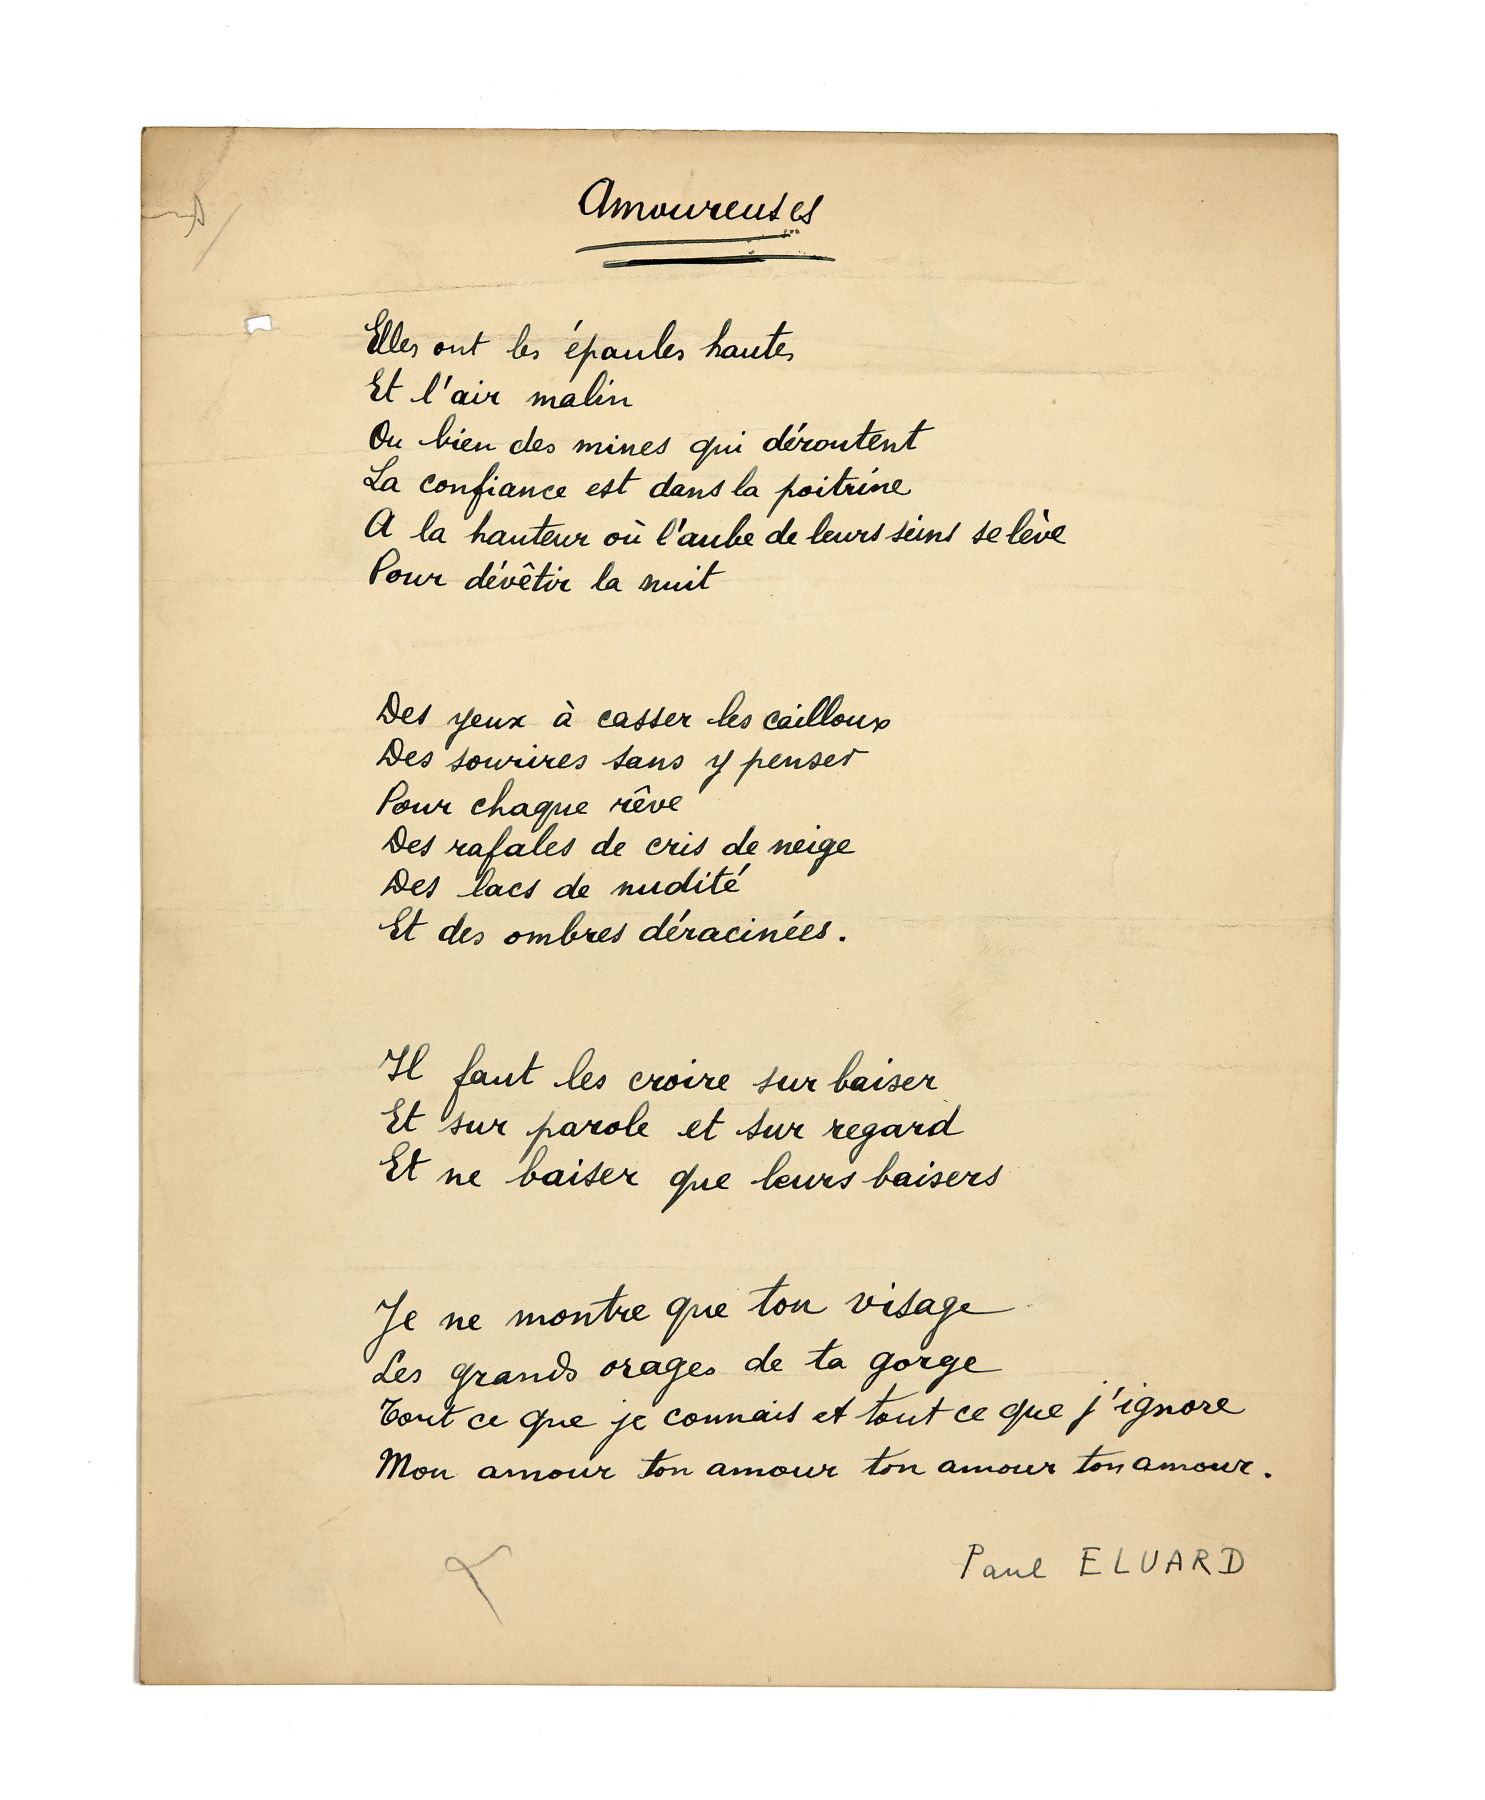 Amoureuses
Elles ont les épaules hautes
Et l'air malin
Ou bien des mines qui déroutent
La confiance est dans la poitrine
A la hauteur où l'aube de leurs seins se lève
Pour dévêtir la nuit
Des yeux à casser les cailloux
Des sourires sans y penser
Pour chaque rêve
Des rafales de cris de neige
Des lacs de nudité
Et des ombres déracinées.
Il faut les croire sur baiser
Et sur parole et sur regard
Et ne baiser que leurs baisers
Je ne montre que ton visage
Les grands orages de ta gorge
Tout ce que je connais et tout ce que j'ignore
Mon amour ton amour ton amour ton amour.
Paul ELUARD